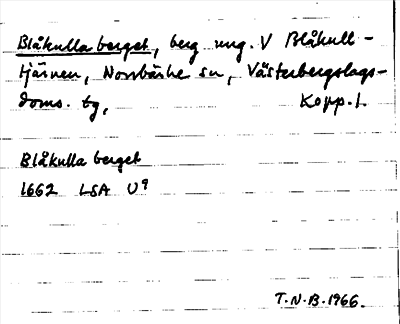 Blåkulla berget, berg omg. V Blåkull-
tjärnen, Norrbärke sn, Västerbergslags-
doms. tg, Kopp. l.
Blåkulla berget
1662 LSA U9
T.N.B. 1966.